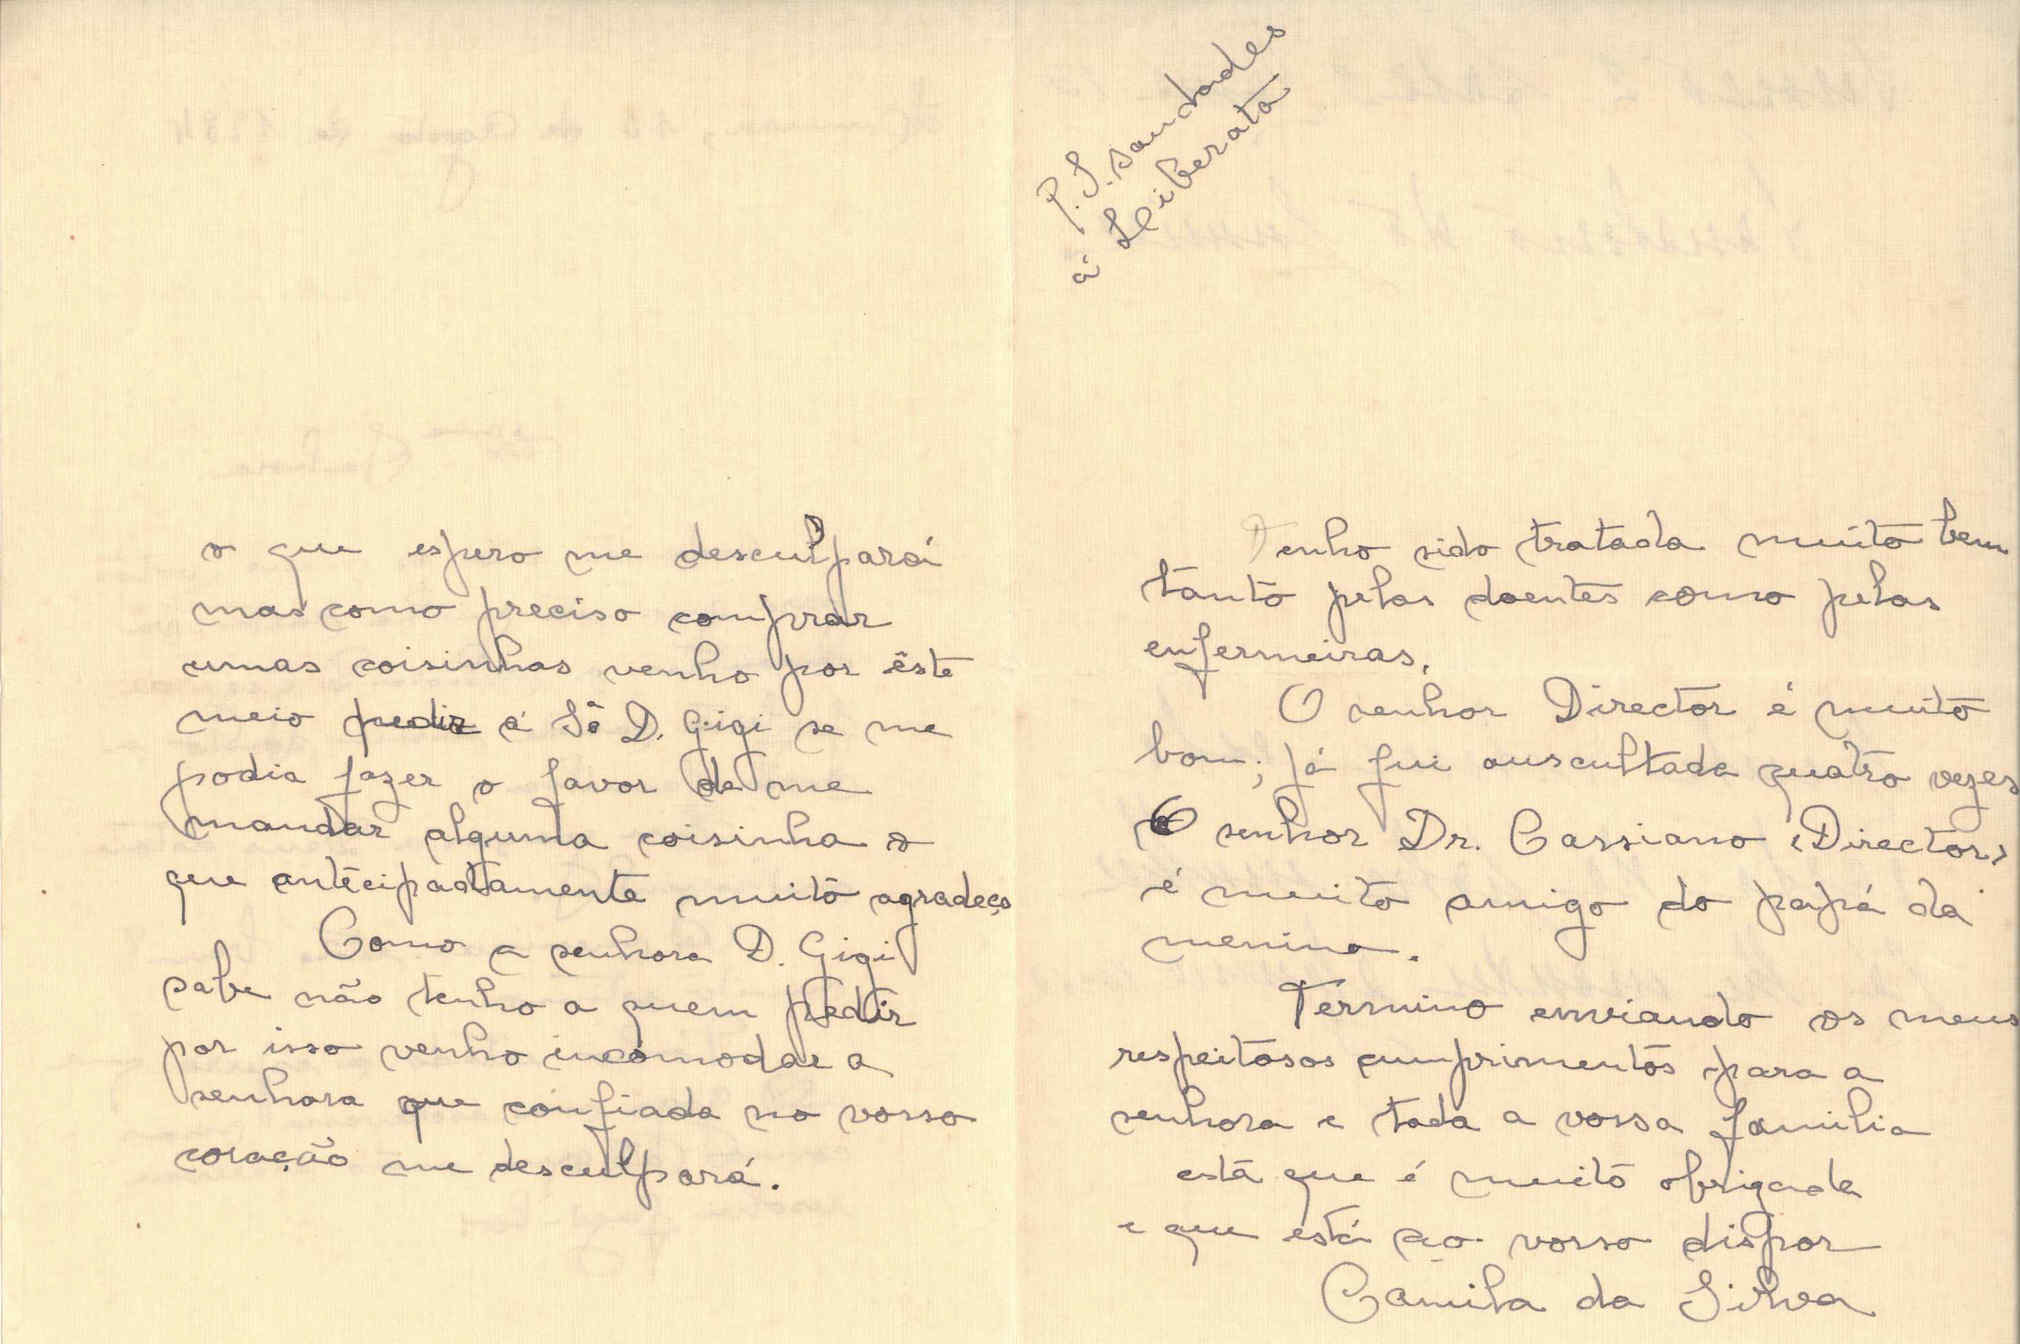 o que espero me desculpará
mas como preciso comprar
umas coisinhas venho por êste
meio pedir á Sª D. Gigi se me
podia fazer o favor de me
mandar alguma coisinha o
que antecipadamente muito agradeço
Como a senhora D. Gigi
sabe não tenho a quem pedir
por isso venho incomodar a
senhora que confiada no vosso
coração me desculpará.
P.S. saudades
á Liberata
Tenho sido tratada muito bem
tanto pelas doentes como pelas
enfermeiras.
O senhor Director é muito
bom; já fui auscultada quatro vezes
O senhor Dr. Cassiano (Director)
é muito amigo do papá da
menina.
Termino enviando os meus
respeitosos cumprimentos para a
senhora e toda a vossa familia
está que é muito obrigada
e que está ao vosso dispor
Camila da Silva